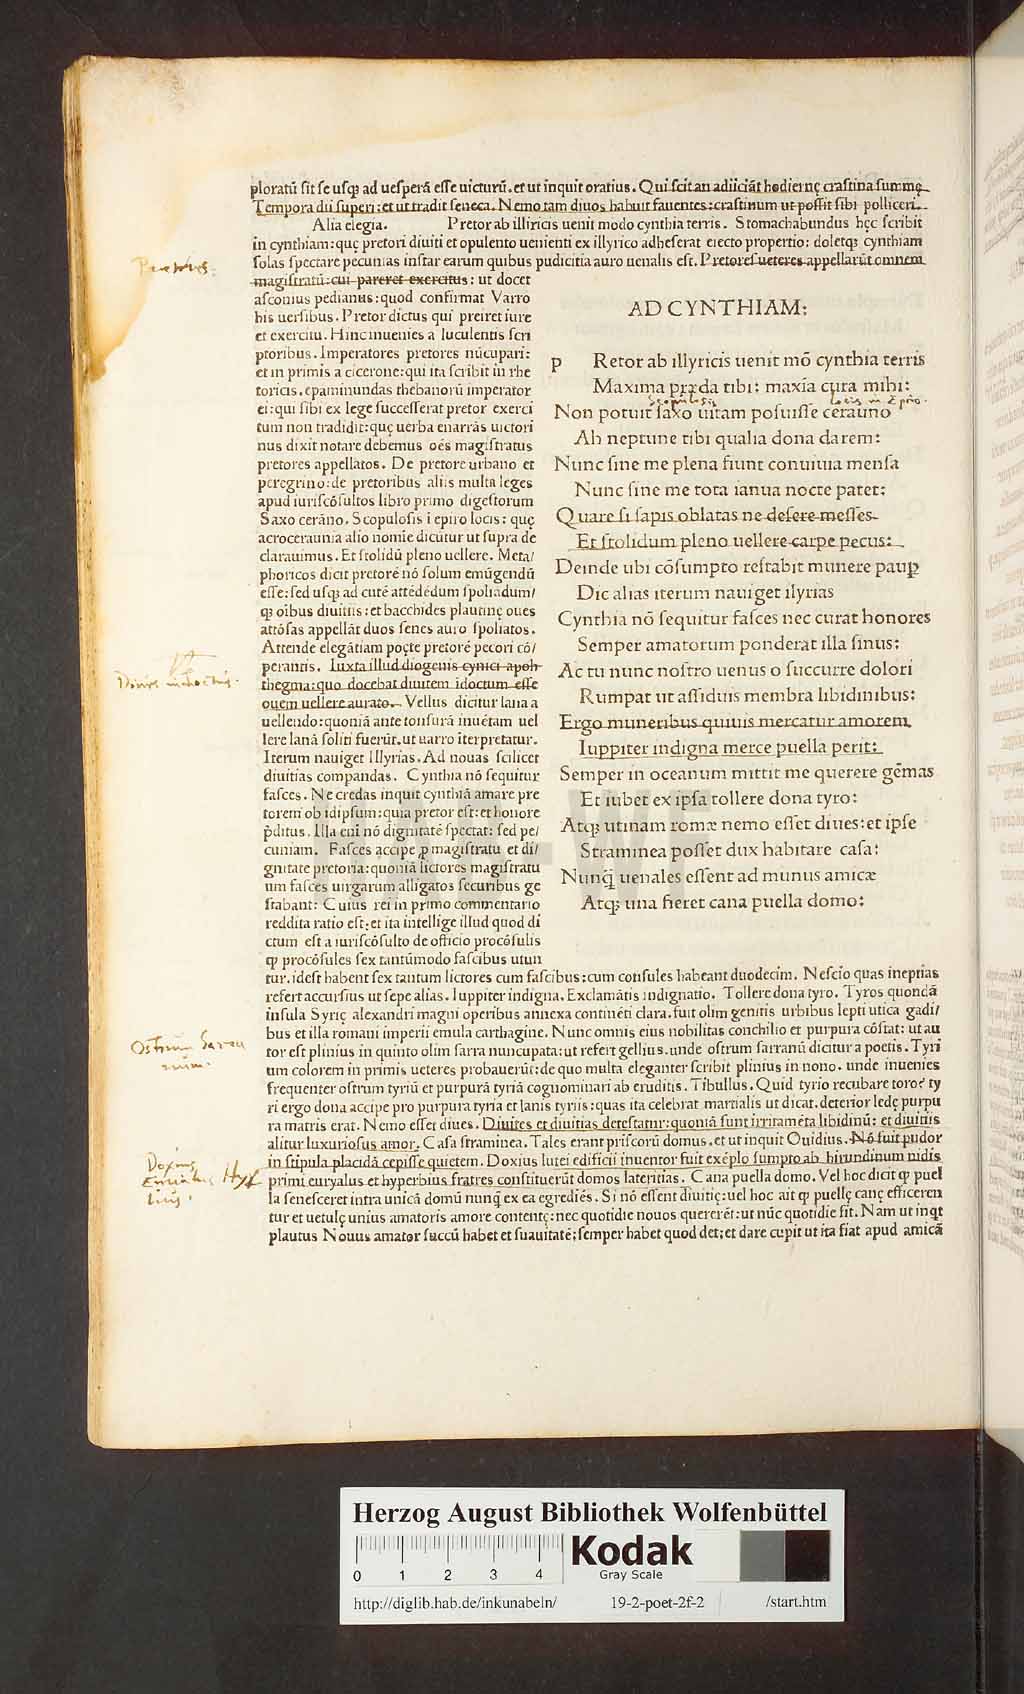 ploratū sit se usq; ad uesperā esse uicturū. et ut inquit oratius. Qui scit an adiiciāt hodiernę crastina summę
Tempora dii superi: et ut tradit seneca. Nemo tam diuos habuit fauentes: crastinum ut possit sibi polliceri.
Alia elegia. Pretor ab illiricis uenit modo cynthia terris. Stomachabundus hęc scribit
in cynthiam: quę pretori diuiti et opulento uenienti ex illyrico adheserat eiecto propertio: doletq; cynthiam
solas spectare pecunias instar earum quibus pudicitia auro uenalis est. Pretores ueteres appellarūt omnem
magistratū: cui pareret exercitus: ut docet
asconius pedianus: quod confirmat Varro
his uersibus. Pretor dictus qui preiret iure
et exercitu. Hinc inuenies a luculentis scri
ptoribus. Imperatores pretores nūcupari:
et in primis a cicerone: qui ita scribit in rhe
toricis. epaminundas thebanorū imperator
ei: qui sibi ex lege successerat pretor exerci
tum non tradidit: quę uerba enarrās uictori
nus dixit notare debemus oēs magistratus
pretores appellatos. De pretore urbano et
peregrino: de pretoribus aliis multa leges
apud iuriscōsultos libro primo digestorum
Saxo cerāno. Scopulosis ī epiro locis: quę
acroceraunia alio nomīe dicūtur ut supra de
clarauimus. Et stolidū pleno uellere. Meta/
phoricos dicit pretorē nō solum emūgendū
esse: sed usq; ad cutē attēdēdum spoliadum/
q; oībus diuitiis: et bacchides plautinę oues
attōsas appellāt duos senes auro spoliatos.
Attende elegātiam poęte pretorē pecori cō/
perantis. Iuxta illud diogenis cynici apoh
thegma: quo docebat diuitem idoctum esse
ouem uellere aurato. Vellus dicitur lana a
uellendo: quoniā ante tonsurā inuētam uel
lere lanā soliti fuerūt. ut uarro īterpretatur.
Iterum nauiget Illyrias. Ad nouas scilicet
diuitias compandas. Cynthia nō sequitur
fasces. Ne credas inquit cynthiā amare pre
torem ob id ipsum: quia pretor est: et honore
p̄ditus. Illa eni nō dignitatē spectat: sed pe/
cuniam. Fasces accipe p magistratu et di/
gnitate pretoria: quoniā lictores magistratu
um fasces uirgarum alligatos securibus ge
stabant: Cuius rei in primo commentario
reddita ratio est: et ita intellige illud quod di
ctum est a iuriscōsulto de officio procōsulis
q procōsules sex tantūmodo fascibus utun
AD CYNTHIAM:
P Retor ab illyricis uenit mō cynthia terris
Maxima præda tibi: maxīa cura mihi:
scopulosis locis in Epiro.
Non potuit saxo uitam posuisse cerauno
Ah neptune tibi qualia dona darem:
Nunc sine me plena fiunt conuiuia mensa
Nunc sine me tota ianua nocte patet:
Quare si sapis oblatas ne desere messes
Et stolidum pleno uellere carpe pecus:
Deinde ubi cōsumpto restabit munere paup
Dic alias iterum nauiget ilyrias
Cynthia nō sequitur fasces nec curat honores
Semper amatorum ponderat illa sinus:
Ac tu nunc nostro uenus o succurre dolori
Rumpat ut assiduis membra libidinibus:
Ergo muneribus quiuis mercatur amorem
Iuppiter indigna merce puella perit:
Semper in oceanum mittit me querere gēmas
Et iubet ex ipsa tollere dona tyro:
Atq; utinam romæ nemo esset diues: et ipse
Straminea posset dux habitare casa:
Nunq̄ uenales essent ad munus amicæ
Atq; una fieret cana puella domo:
tur. idest habent sex tantum lictores cum fascibus: cum consules habeant duodecim. Nescio quas ineptias
refert accursius ut sepe alias. Iuppiter indigna. Exclamātis indignatio. Tollere dona tyro. Tyros quondā
insula Syrię alexandri magni operibus annexa continēti clara. fuit olim genitis urbibus lepti utica gadi/
bus et illa romani imperii emula carthagine. Nunc omnis eius nobilitas conchilio et purpura cōstat: ut au
tor est plinius in quinto olim sarra nuncupata: ut refert gellius. unde ostrum sarranū dicitur a poetis. Tyri
um colorem in primis ueteres probauerūt: de quo multa eleganter scribit plinius in nono. unde inuenies
frequenter ostrum tyriū et purpurā tyriā cognominari ab eruditis. Tibullus. Quid tyrio recubare toro? ty
ri ergo dona accipe pro purpura tyria et lanis tyriis: quas ita celebrat martialis ut dicat. deterior ledę purpu
ra matris erat. Nemo esset diues. Diuites et diuitias detestatur: quoniā sunt irritamēta libidinū: et diuitiis
alitur luxuriosus amor. Casa straminea. Tales erant priscorū domus. et ut inquit Ouidius. Nō fuit pudor
in stipula placidā cepisse quietem. Doxius lutei edificii inuentor fuit exēplo sumpto ab hirundinum nidis
primi euryalus et hyperbius fratres constituerūt domos lateritias. Cana puella domo. Vel hoc dicit q puel
la senesceret intra unicā domū nunq̄ ex ea egrediēs. Si nō essent diuitię: uel hoc ait q puellę canę efficeren
tur et uetulę unius amatoris amore contentę: nec quotidie nouos quererēt: ut nūc quotidie fit. Nam ut inqt
plautus Nouus amator succū habet et suauitatē: semper habet quod det: et dare cupit ut ita fiat apud amicā
Pretores.
Diues indoctus.
Ostrum Sarra
num.
Doxius
Eurialus Hyp
bius.
HAB-WF
Herzog August Bibliothek Wolfenbüttel
Kodak
0 1 2 3 4
Gray Scale
http://diglib.hab.de/inkunabeln/ 19-2-poet-2f-2 /start.htm